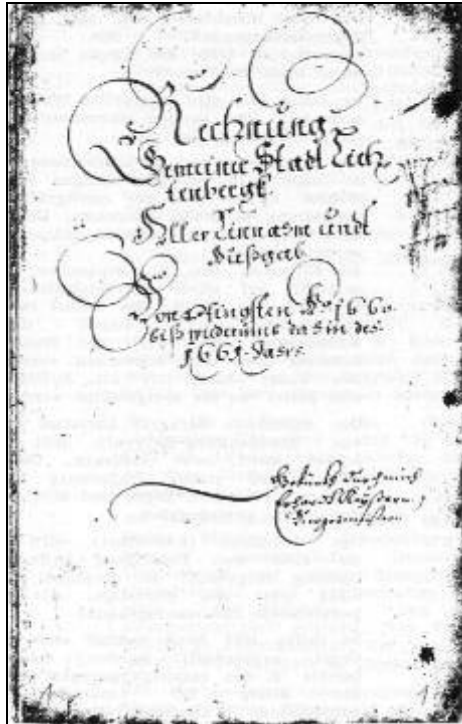 Rechnung
Gemeiner Stadt Liech
tenbergk
Aller Einnam undt
Außgab
Von Pfingsten Ao 1660.
biß widerumb dahin des
1661 Jars.
durch mich
Erhardt
Burgermeistern